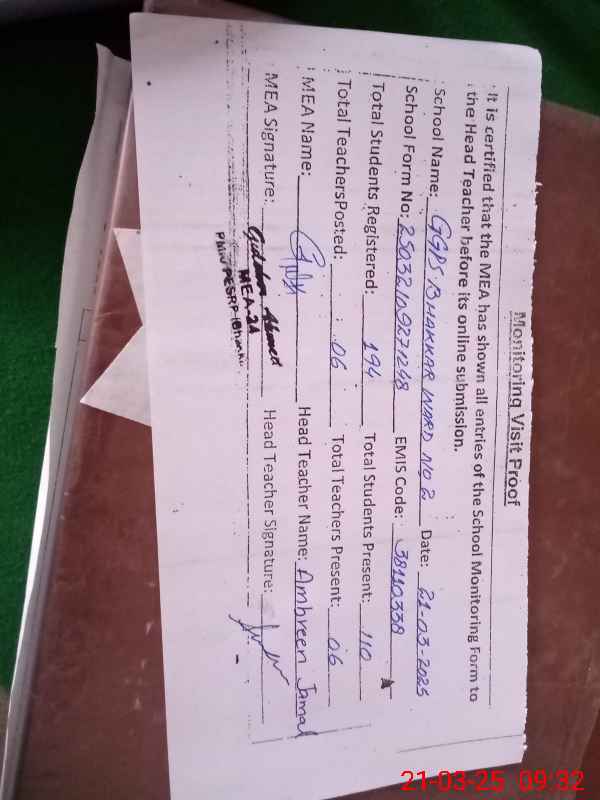 Monitoring Visit Proof
It is certified that the MEA has shown all entries of the School Monitoring Form to
the Head Teacher before its online submission.
School Name: GGPS BHAKKAR WARD NO 2 Date: 21-03-2025
School Form No: 25032109271248 EMIS Code: 38110338
Total Students Registered: 194 Total Students Present: 110
Total TeachersPosted: 06 Total Teachers Present: 06
MEA Name: Head Teacher Name: Ambreen Jamal
MEA Signature: Head Teacher Signature:
Ahmed
MEA-24
21-03-25 09:32